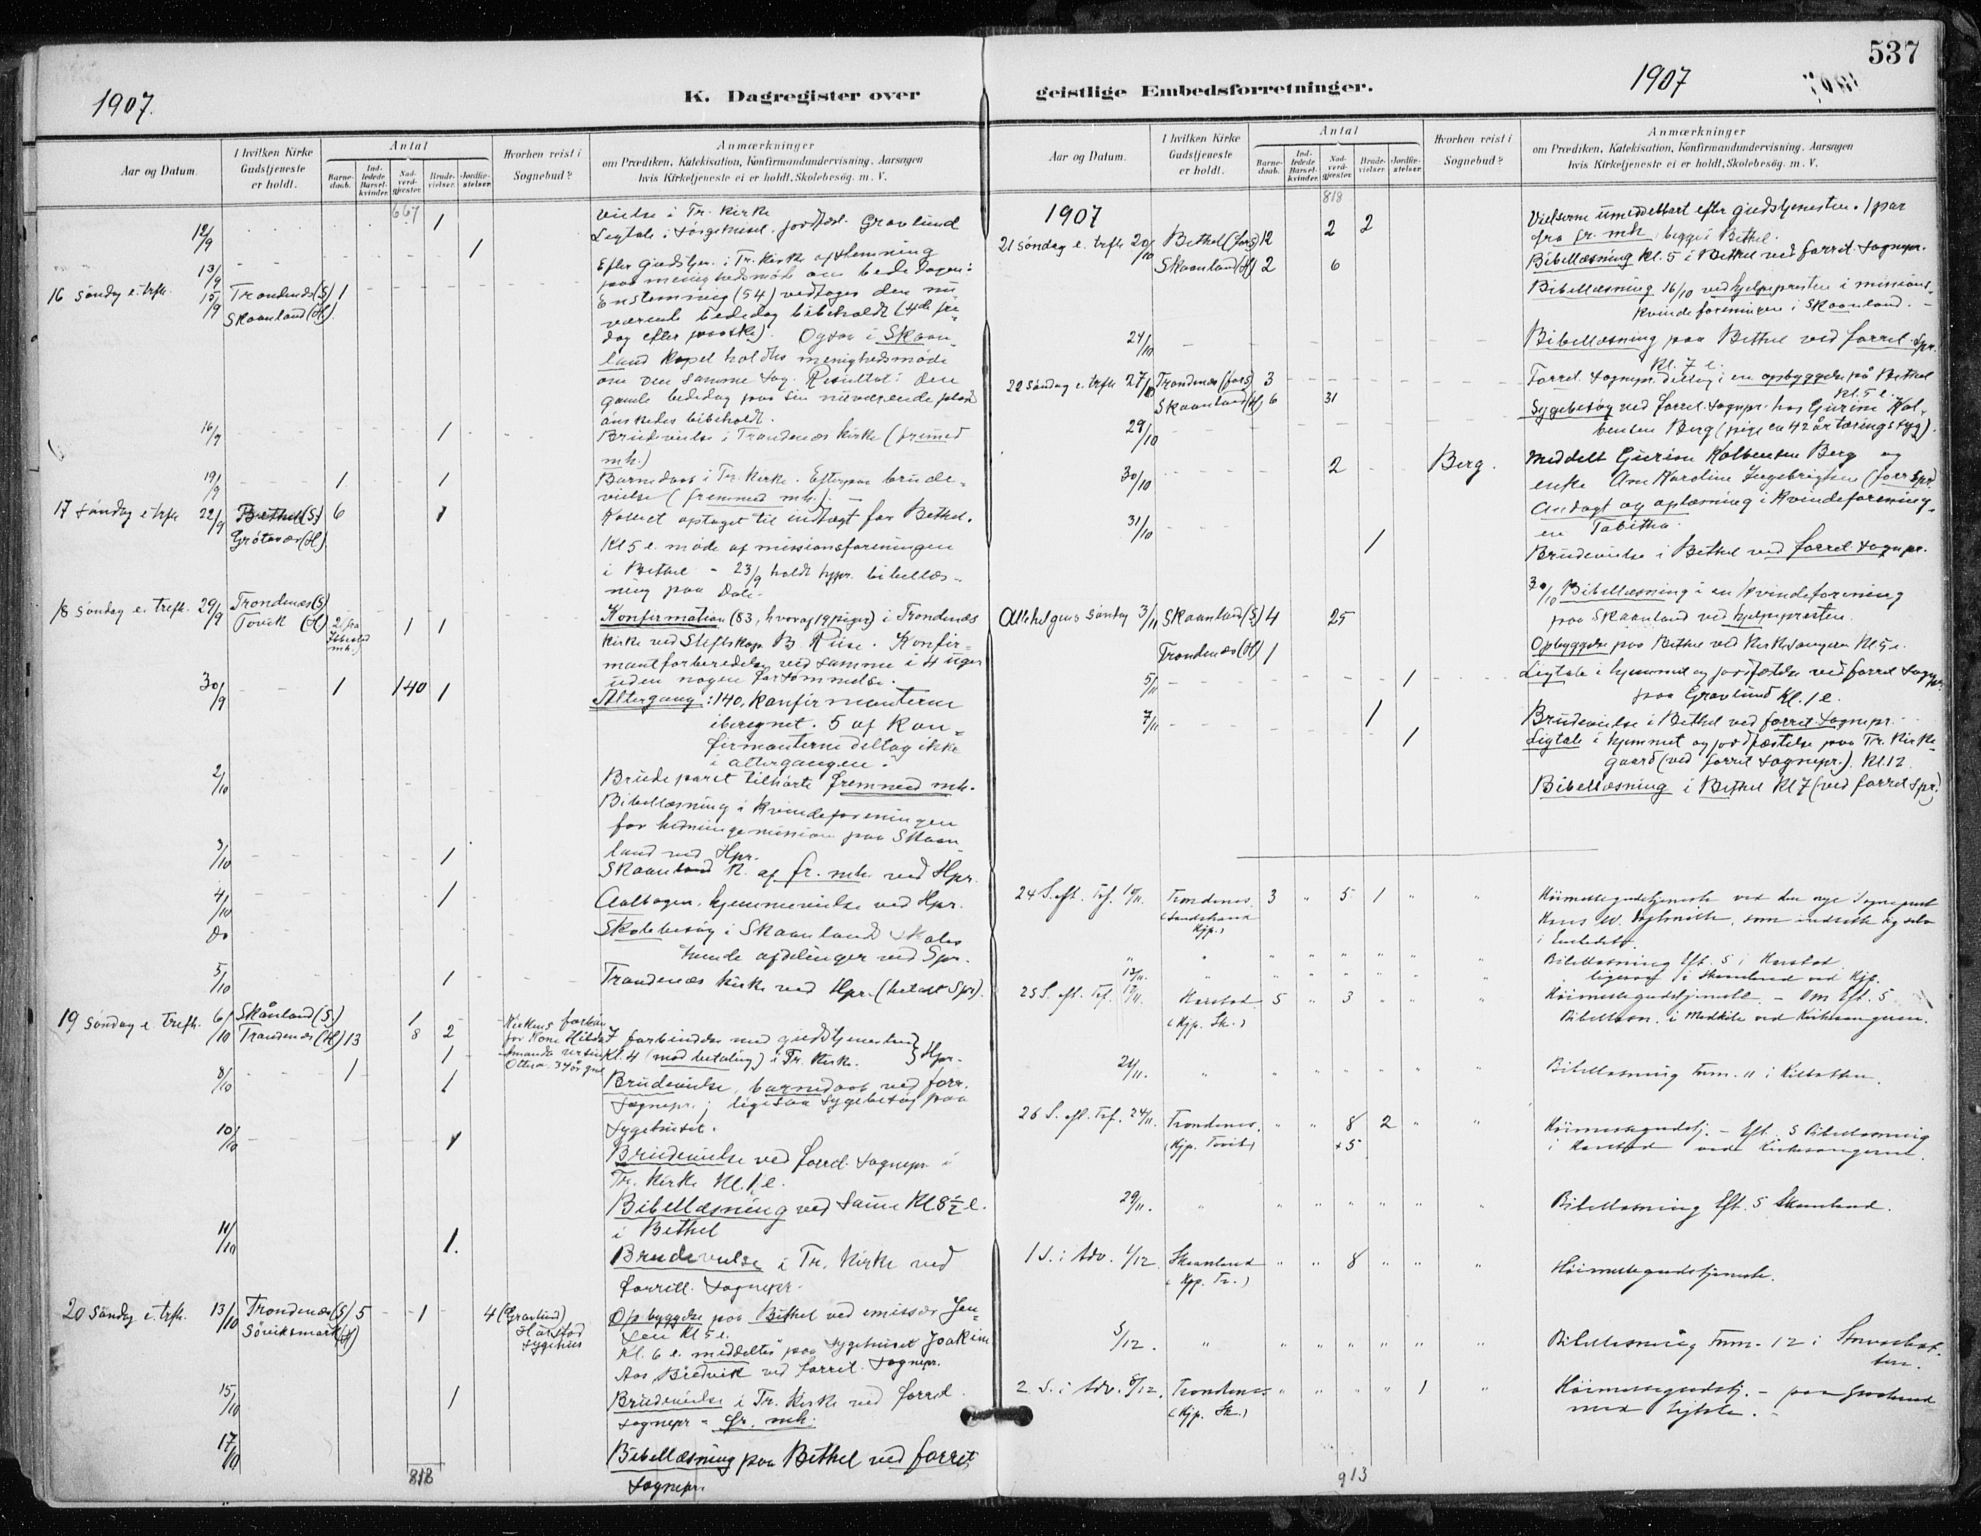 537
1907.
K. Dagregister over
Aar og Datum.
I hvilken Kirke Gudstjeneste er holdt.
Antal
Barnedaab.
Indledede Barselkvinder.
Nadverdgjester.
Brudevielser.
Jordfæstelser.
Hvorhen reist i Sognebud?
Anmærkninger
om Prædiken, Katekisation, Konfirmandundervisning. Aarsagen
hvis Kirketjeneste ei er holdt, Skolebesøg. m. V.
667
12/9 1 Vielse i Tr. Kirke
1 Ligtale i Sørgehuset. jordfæst. Gravlund
13/9 Efter Gudstjen. i Tr. Kirke afstemning
paa menighedsmøde om bededagen:
16 søndag e. trft. 15/9 Trondenæs (S) 1 Enstemmig (54) vedtoges den nu
Skaanland (H) værende bededag bibeholdt (4de fre-
dag efter paaske). Ogsaa i Skaan-
land Kapel holdtes menighedsmøde
om den samme sag. Resultat: den
gamle bededag paa sin nuværende plads
ønskedes bibeholdt.
16/9 1 Brudevielse i Trondenæs Kirke (fremed
mh.)
19/9 1 1 Barnedaab i Tr. Kirke. Efterpaa brude-
vielse (fremmed mh.).
17 søndag e. trft. 22/9 Bethel (S) 6 1 Kollect optaget til indtægt for Bethel.
Grøtavær (H) Kl 5 e. møde af missionsforeningen
i Bethel - 23/9 holdt hjpr. bibellæs-
ning paa Dale.
18 søndag e. treft. 29/9 Trondenæs (S) Konfirmation (83, hvoraf 19 piger) i Trondenæs
Tovik (H) 2 fra Ibbestad mh.) 1 1 Kirke ved Stiftskap. B. Riise. Konfir-
mantforberedelse ved samme i 4 uger
uden nogen forsømmelse.
30/9 1 140 1 Altergang: 140, konfirmanterne
iberegnet. 5 af kon-
firmanterne deltog ikke
i altergangen.
2/10 Brudeparet tilhørte fremmed mh.
Bibellæsning i Kvindeforeningen
for hedningemission paa Skaan-
land ved Hpr.
3/10 1 Skaanland K. af fr. mh. ved Hpr.
4/10 1 Aalbogen, hjemmevielse ved Hpr.
Do Skolebesøg i Skaanlands skoles
hende afdelinger ved Spr.
5/10 1 Trondenæs Kirke ved Hpr. (betalt Spr).
19 søndag e. trefh. 6/10 Skånland (S) 1
Trondenæs (H) 13 8 2 forbindelse med gudstjenesten
1 Kl. 4 (mod betaling) i Tr. Kirke. } Hpr.
8/10 1 1 Brudevielse, barnedaab ved forr.
Sognepr.; ligesaa Sygebesøg paa
Sygehuset.
10/10 1 Brudevielse ved forret. Sognepr. i
Tr. Kirke Kl. 1 e.
Bibellæsning ved samme Kl 8 1/2 e.
i Bethel
11/10 1. Brudevielse i Tr. Kirke ved
forrett. Sognepr.
20 søndag e. trft. 13/10 Trondenæs (S) 5 1 4 (Gravlund) Opbyggelse paa Bethel ved emissær Jen-
Sørviksmark (H) Harstad sygehus sen Kl 5 e.
Kl. 6 e. meddeltes paa Sygehuset Joakim
Aas Bredvik ved forret. Sognepr.
15/10 1 Brudevielse i Tr. Kirke ved forret
Sognepr - fr. mh.
17/10 Bibellæsning paa Bethel ved forret
818 Sognepr.
geistlige Embedsforretninger.
1907
Aar og Datum.
I hvilken Kirke Gudstjeneste er holdt.
Antal
Barnedaab.
Indledede Barselkvinder.
Nadverdgjester.
Brudevielser.
Jordfæstelser.
Hvorhen reist i Sognebud?
Anmærkninger
om Prædiken, Katekisation, Konfirmandundervisning. Aarsagen
hvis Kirketjeneste ei er holdt, Skolebesøg. m. V.
818
1907 Vielserne umiddelbart efter gudstjenesten. 1 par
21 søndag e. trefh 20/10 Bethel (fors) 12 2 2 fra fr. mh., begge i Bethel.
Skaanland (H) 2 6 Bibellæsning Kl. 5 i Bethel ved forret. Sognepr.
Bibellæsning 16/10 ved hjelpepresten i missions-
kvindeforeningen i Skaanland.
24/10 Bibellæsning paa Bethel ved forret. Spr.
Kl. 7 e.
22 søndag e. trefh 27/10 Trondenæs (fors) 3 Forret. Sognepr. deltog i en opbyggelse på Bethel
Kl. 5 e.
Skaanland (H) 6 31 Sygebesøg ved forret. Sognepr. hos Gjurine Kol-
29/10 bentsen Berg (pige ca 42 år tæringssyg).
30/10 2 Berg. Meddelt Gjurine Kolbentsen Berg og
enke Ane Karoline Ingebrigtsen (forr Spr.
31/10 Andagt og oplæsning i Kvindeforening-
en Tabitha.
1 Brudevielse i Bethel ved forret. Sognepr.
30/10 Bibellæsning i en kvindeforening
Allehelgens søndag 3/11 Skaanland (S) 4 25 paa Skaanland ved hjelpepresten.
Trondenæs (H) 1 Opbyggelse paa Bethel ved Kirkesangeren Kl 5 e.
5/11 1 Ligtale i hjemmet og jordfæstelse ved forret Sognepr.
paa Gravlund Kl. 1 e.
7/11 1 Brudevielse i Bethel ved forret. Sognepr.
1 Ligtale i hjemmet og jordfæstelse paa Tr. Kirke-
gaard (ved forret Sognepr.). Kl. 12.
Bibellæsning i Bethel Kl 7 (ved forret Spr.)
24 S. eft. Tref. 10/11. Trondenes. 3 " 5 1 " " Høimessegudstjeneste ved den nye Sogneprest
(Sandstrand Kjp.) som indsatte sig selv
i Embedet.
" " " " " " " Bibellæsning Eft. 5 i Harstad,
13/11. " " " " " " ligesaa i Skaanland ved Kjp.
25 S. eft. Tref. 17/11. Harstad 5 " 3 " " " Høimessegudstjeneste - Om Eft. 5
(Kjp. Sk.) Bibellæsn. i Medkile ved Kirkesangeren.
21/11. " " " " " " " Bibellæsning Form. 11 i Kilbotten.
26 S. eft. Tref. 24/11. Trondenes. " " 8 2 " " Høimessegudstj. - Eft. 5 Bibellæsning
(Kjp. Tovik) + 5 i Harstad ved Kirkesangeren.
29/11. " " " " " " " Bibellæsning Eft. 5 Skaanland.
1 S. i Adv. 1/12. Skaanland " " 8 " " " Høimessegudstjeneste.
(Kjp. Tr.)
5/12. " " " " " " " Bibellæsning Form. 12 i
2. S. i Adv. 8/12. Trondenes " " " " 1 " Høimessegudstj. - paa Gravlund
(Kjp. Sk.) med Ligtale. -
913